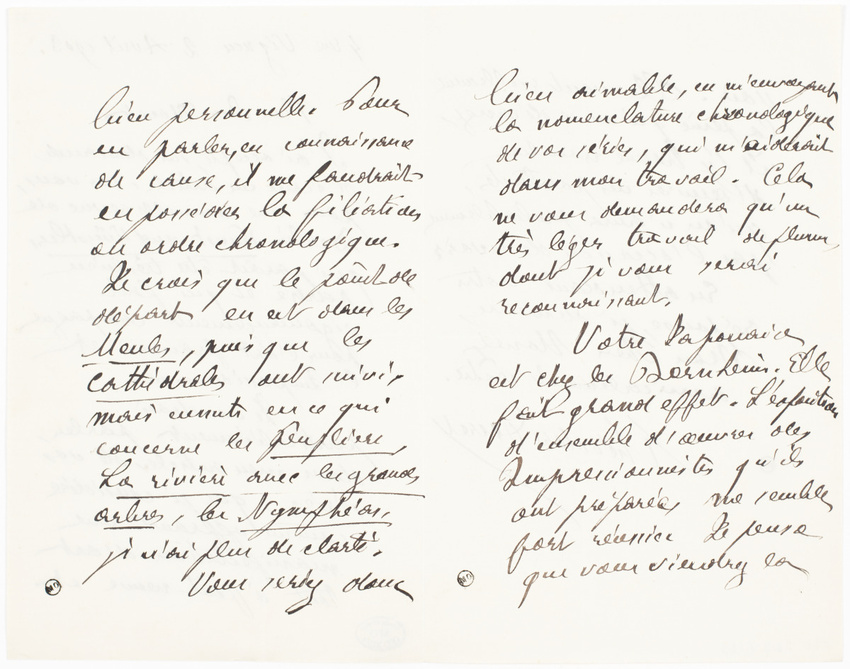 bien personnelle. Pour
en parler, en connaissance
de cause, il me faudrait
en posséder la filiation
ou ordre chronologique.
Je crois que le point de
départ en est dans les
Meules, puis que les
Cathédrales ont suivi,
mais ensuite en ce qui
concerne les Peupliers,
La rivière avec les grands
arbres, les Nymphéas,
je n'ai plus de clarté.
Vous seriez donc
bien aimable, en m'envoyant
la nomenclature chronologique
de vos séries, qui m'aiderait
dans mon travail. Cela
ne vous demandera qu'un
très léger travail de plume,
dont je vous serai
reconnaissant.
Votre Japonaise
est chez les Bernheim. Elle
fait grand effet. L'exposition
d'ensemble d'œuvres des
Impressionnistes qu'ils
ont préparée me semble
fort réussie. Je pense
que vous viendrez la